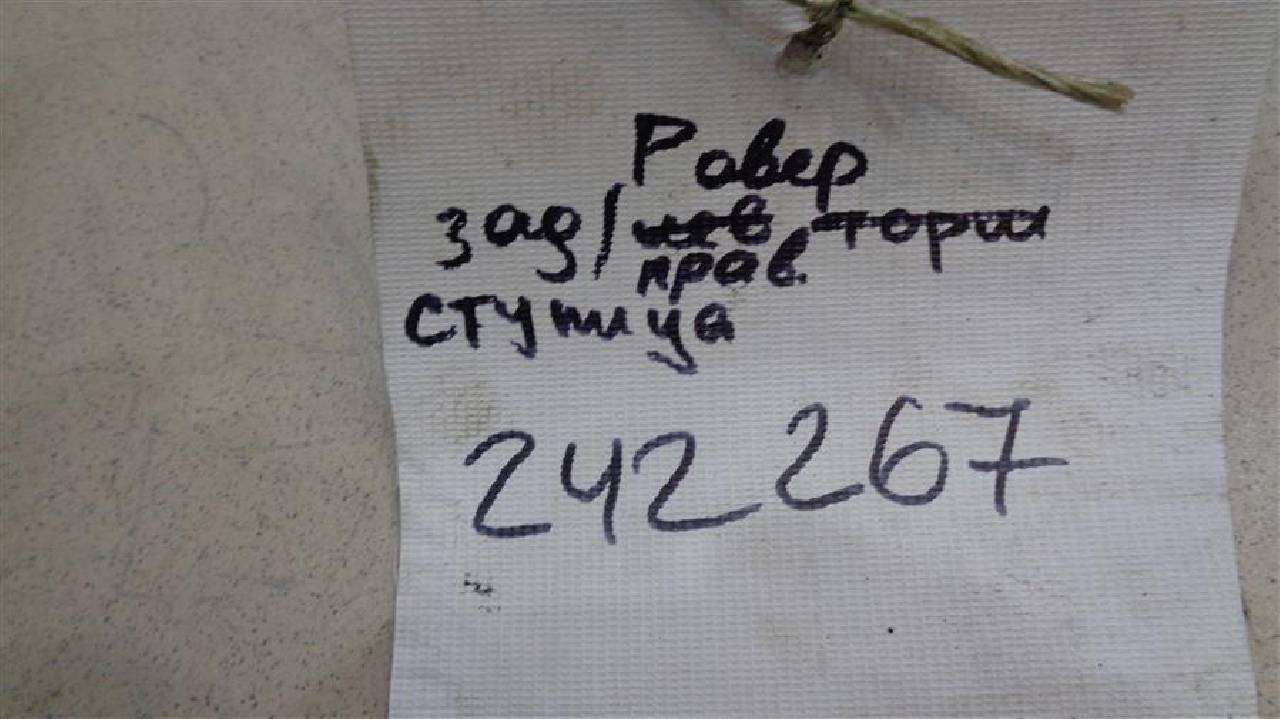 Равер
зад/ лев торш
прав.
ступица
242 267